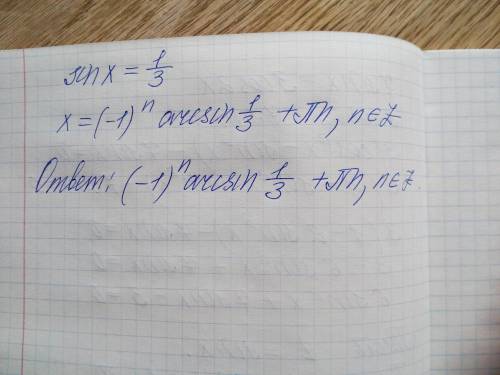 sin x = 1/3
x = (-1)^n arcsin 1/3 + πn, n ∈ Z
Ответ: (-1)^n arcsin 1/3 + πn, n ∈ Z.